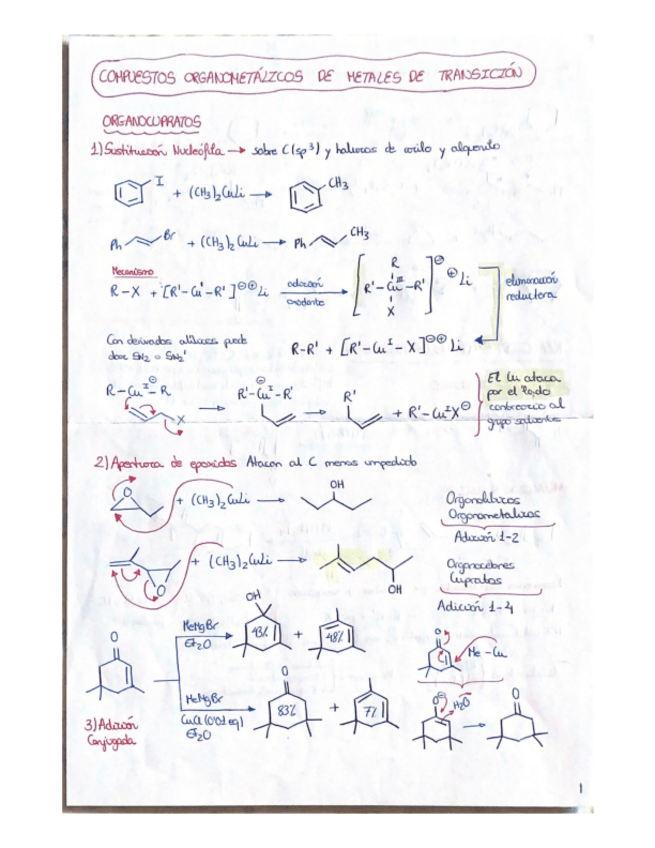 COMPUESTOS ORGANOMETÁLICOS DE METALES DE TRANSICIÓN
ORGANOCUPRATOS
1) Sustitución Nucleófila → sobre C(sp³) y haluros de arilo y alquenilo
I + (CH₃)₂CuLi → CH₃
Ph Br + (CH₃)₂CuLi → Ph CH₃
Mecanismo
R-X + [R'-Cuᴵ-R']⊖⊕Li
adición
oxidante
[R'-Cuᴵᴵᴵ-R' R X]⊖ ⊕Li
eliminación
reductora
R-R' + [R'-Cuᴵ-X]⊖⊕Li
Con derivados alílicos puede
darse SN2 o SN2'
R-Cuᴵ⊖-R
X
→ R'-Cuᴵ⊖-R' → R' + R'-CuᴵX⊖
El Cu ataca
por el lado
contrario al
grupo saliente
2) Apertura de epóxidos Atacan al C menos impedido
O + (CH₃)₂CuLi → OH
O + (CH₃)₂CuLi → OH
Organolíticos
Organometálicos
Adición 1-2
Organocobres
Cupratos
Adición 1-4
O
MeMgBr
Et₂O
OH 43% + 48%
MeMgBr
CuCl (0'01 eq)
Et₂O
O 83% + 7%
3) Adición
Conjugada
O Me-Cu
O⊖ H₂O → O
1